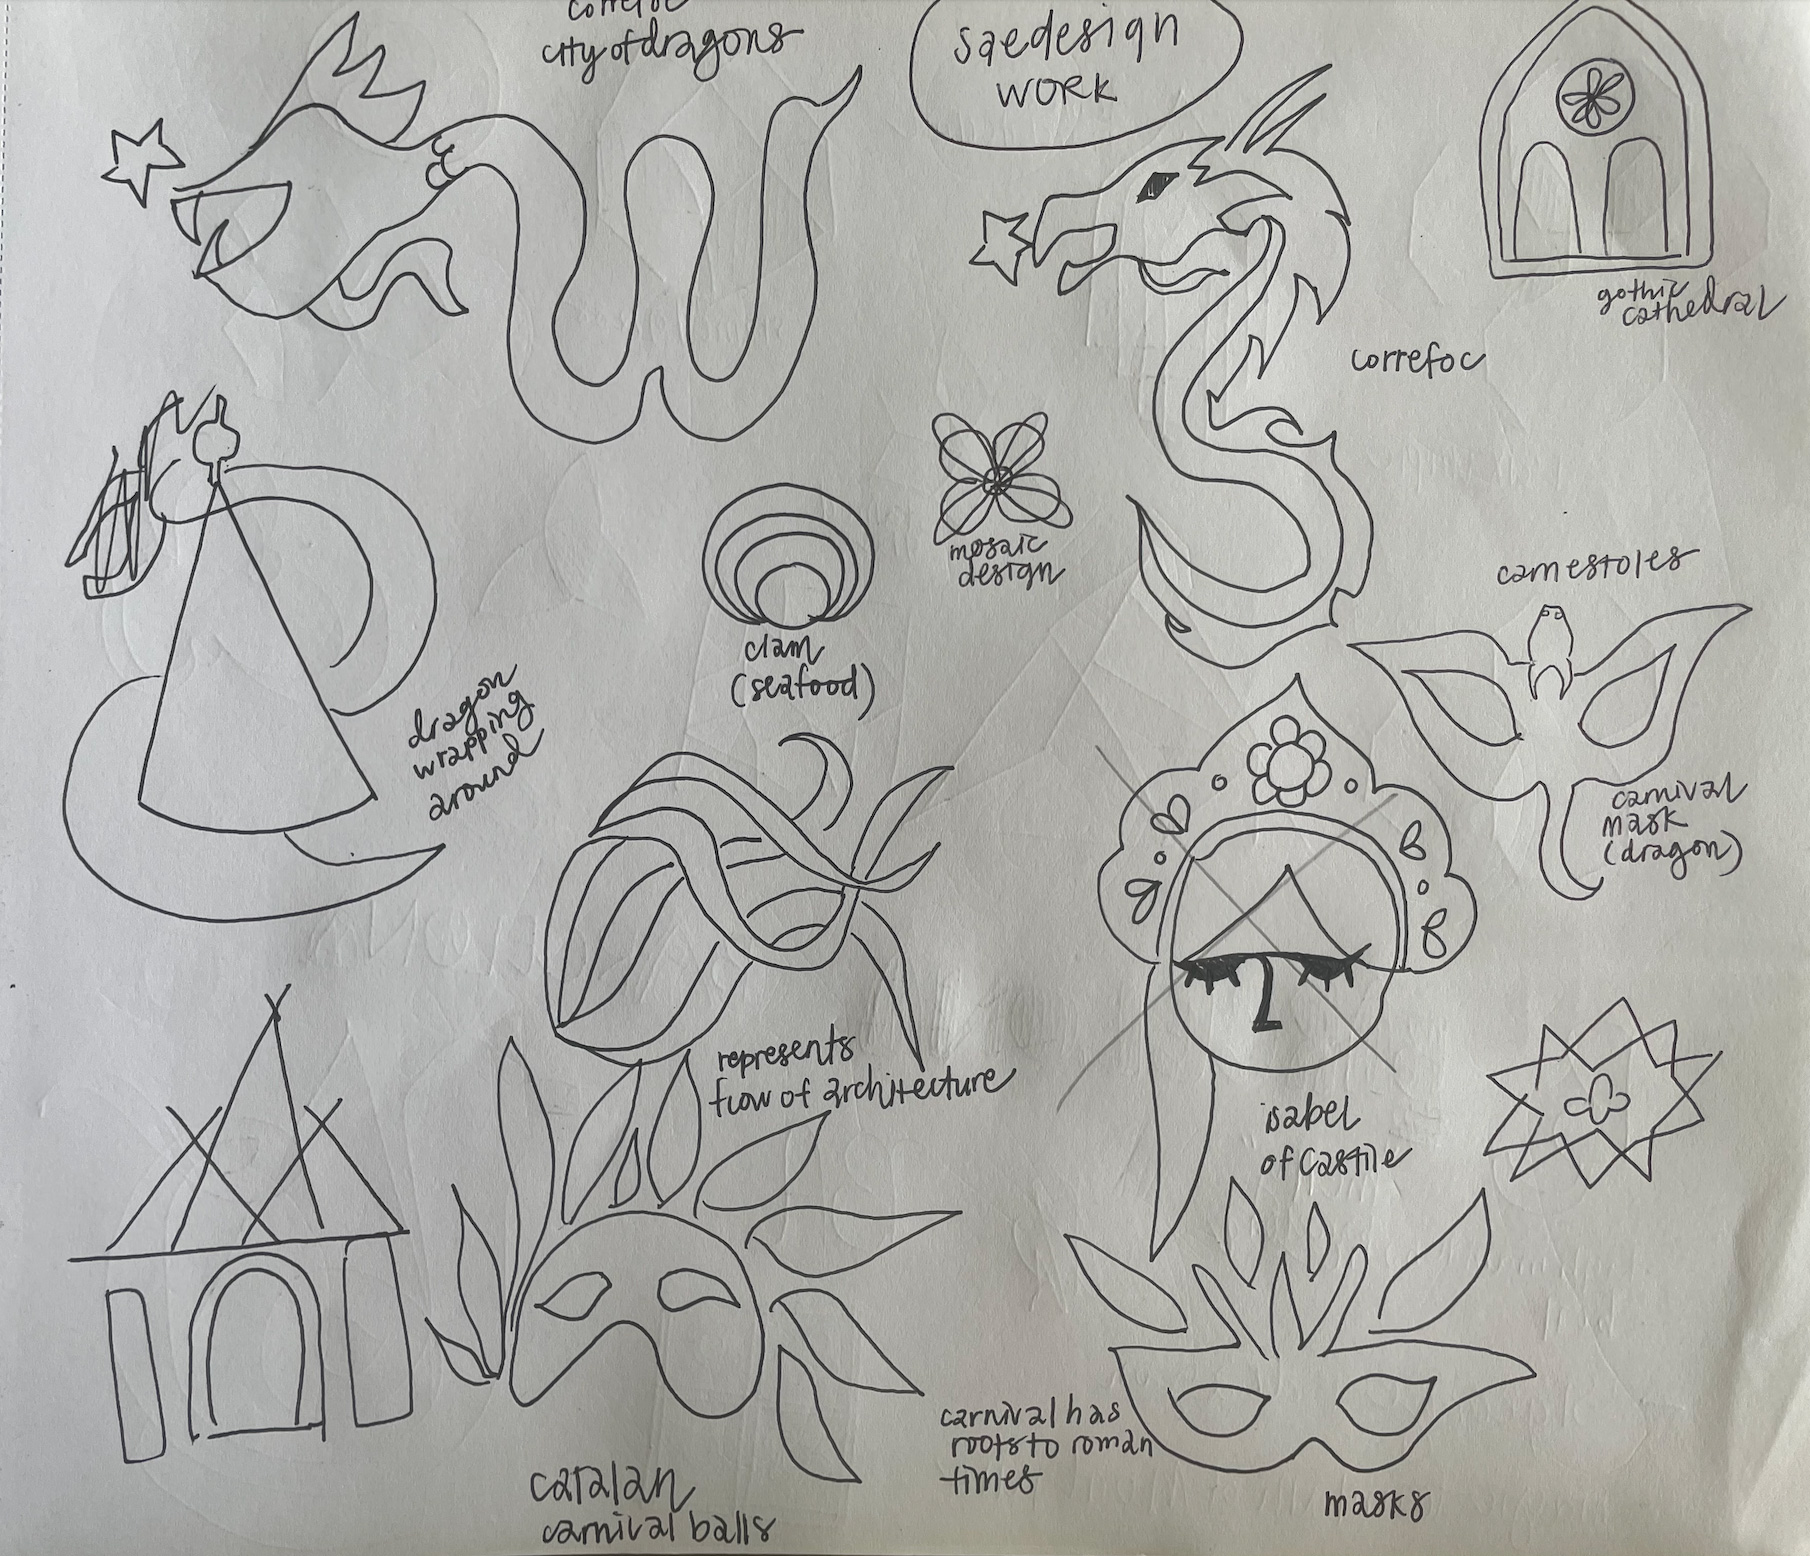 correfoc
city of dragons
saedesign
WORK
gothic
cathedral
correfoc
mosaic
design
clam
(seafood)
camestoles
dragon
wrapping
around
carnival
mask
(dragon)
represents
flow of architecture
isabel
of castile
carnival has
roots to roman
times
catalan
carnival balls
masks